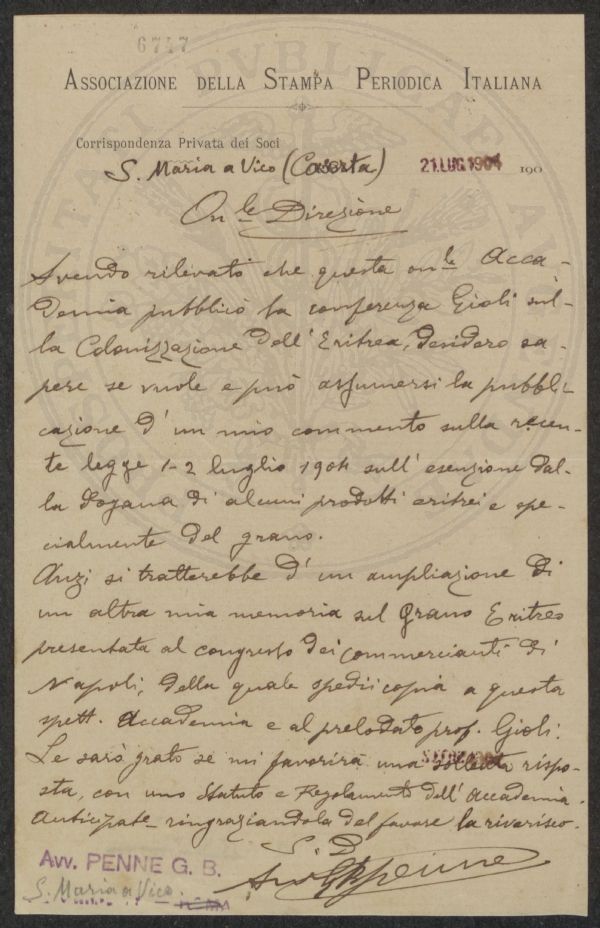 6717
ASSOCIAZIONE DELLA STAMPA PERIODICA ITALIANA
Corrispondenza Privata dei Soci
S. Maria a Vico (Caserta) 21 LUG. 1904 190
On.le Direzione
Avendo rilevato che questa on.le Acca-
demia pubblicò la conferenza Gioli sul-
la Colonizzazione dell'Eritrea, desidero sa-
pere se vuole e può assumersi la pubbli-
cazione d'un mio commento sulla recen-
te legge 1-2 luglio 1904 sull'esenzione dal-
la dogana di alcuni prodotti eritrei e spe-
cialmente del grano.
Anzi si tratterebbe d'un ampliazione di
un altra mia memoria sul Grano Eritreo
presentata al congresso dei commercianti di
Napoli, della quale spedii copia a questa
spett. Accademia e al prelodato prof. Gioli.
Le sarò grato se mi favorirà una sollecita rispo-
sta, con uno Statuto e Regolamento dell'Accademia.
Anticipate ringraziandola del favore la riverisco.
S. D.
Avv. GBPenne
Avv. PENNE G. B.
S. Maria a Vico.
ROMA